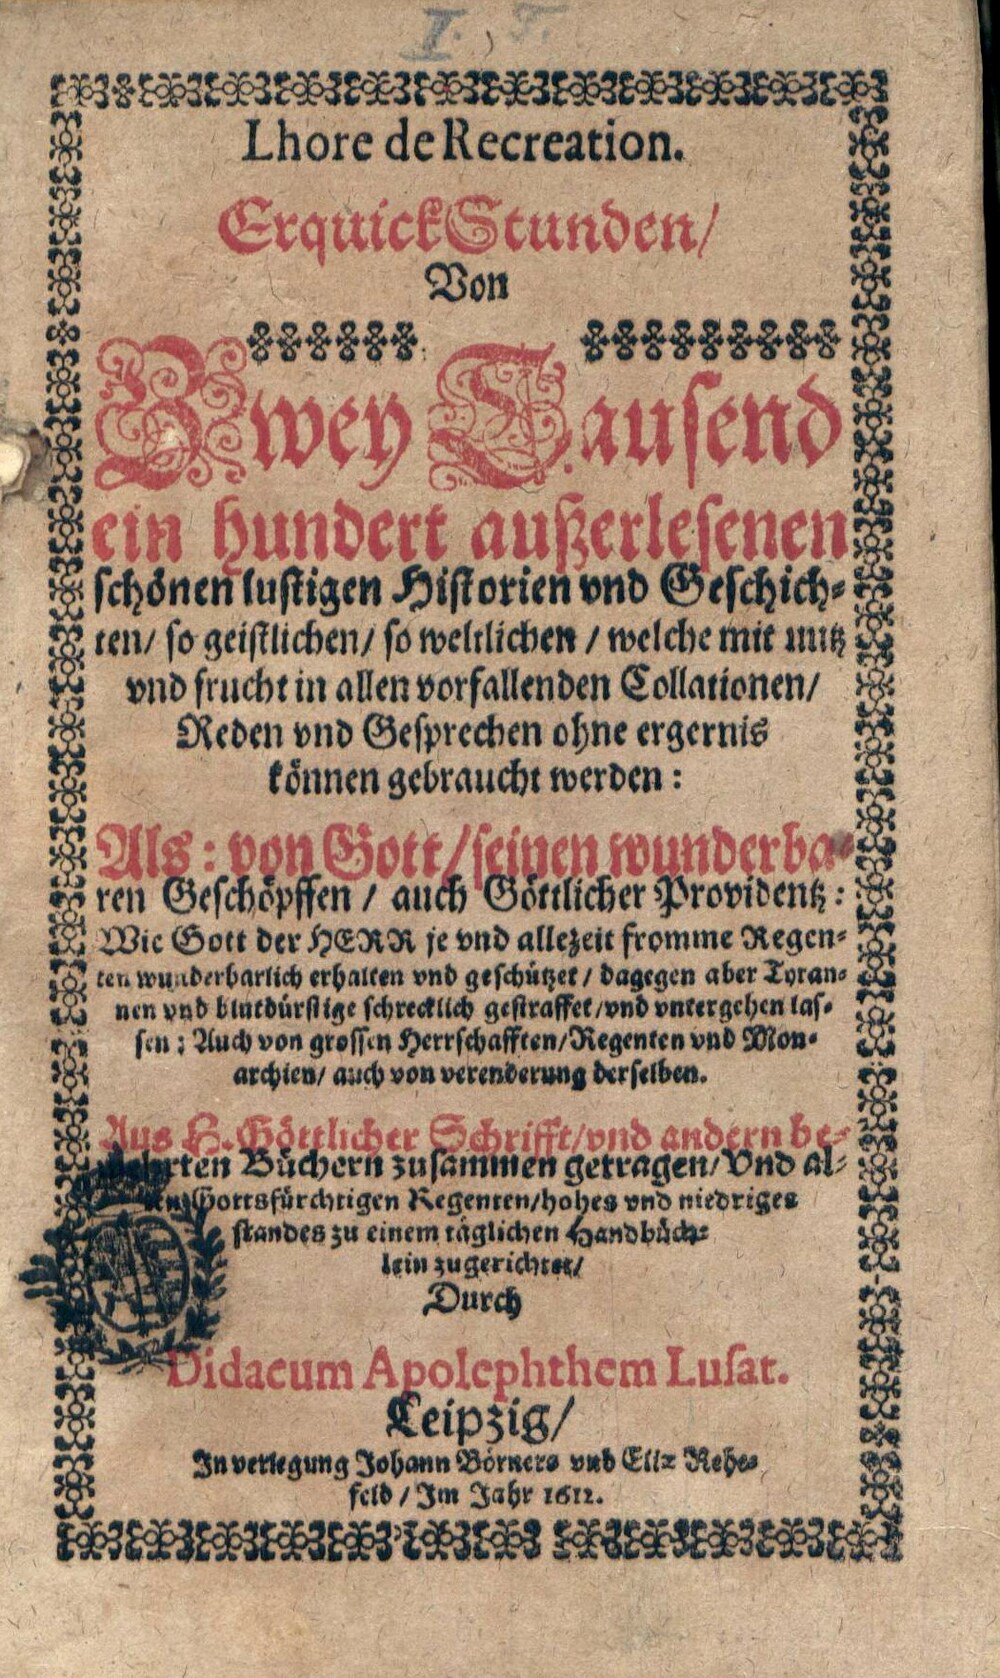 I. F.
Lhore de Recreation.
ErquickStunden/
Von
Zwey Tausend
ein hundert außerlesenen
schönen lustigen Historien vnd Geschich-
ten/ so geistlichen/ so weltlichen / welche mit nutz
vnd frucht in allen vorfallenden Collationen/
Reden vnd Gesprechen ohne ergernis
können gebraucht werden:
Als: von Gott/ seinen wunderba-
ren Geschöpffen / auch Göttlicher Providentz:
Wie Gott der HERR je vnd allezeit fromme Regen-
ten wunderbarlich erhalten vnd geschützet / dagegen aber Tyran-
nen vnd blutdürstige schrecklich gestraffet/vnd vntergehen las-
sen: Auch von grossen Herrschafften/Regenten vnd Mon-
archien/ auch von verenderung derselben.
Aus H. Göttlicher Schrifft/vnd andern be-
Büchern zusammen getragen/ Vnd al-
len Gottsfürchtigen Regenten/hohes vnd niedriges
standes zu einem täglichen Handbüch-
lein zugerichtet/
Durch
Didacum Apolephthem Lusat.
Leipzig/
In verlegung Johann Börners vnd Eliæ Rehe-
feld / Im Jahr 1612.